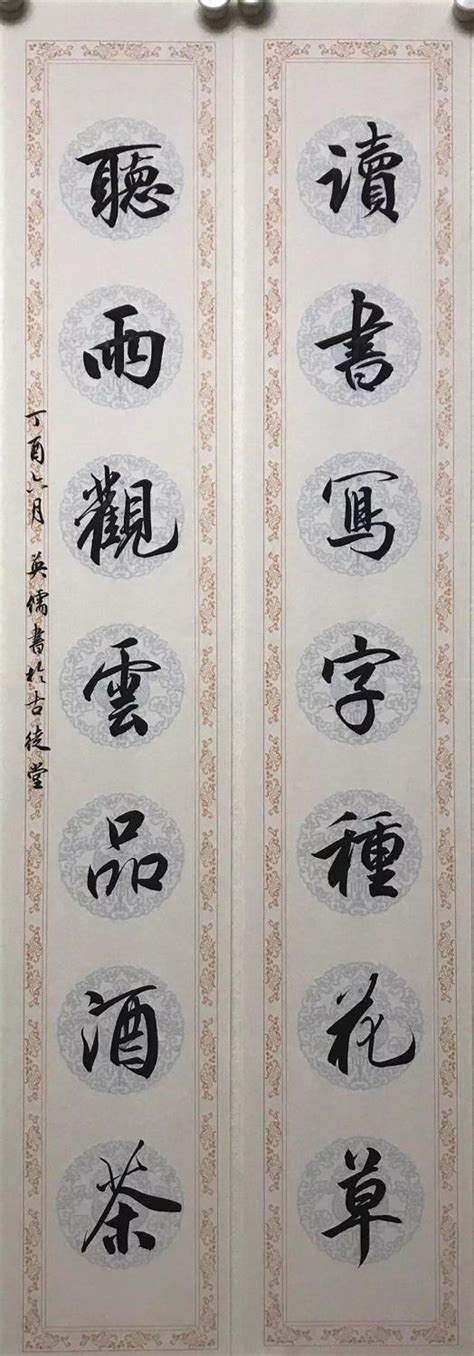 讀書寫字種花草
聽雨觀雲品酒茶
丁酉六月 英儒書於古徒堂